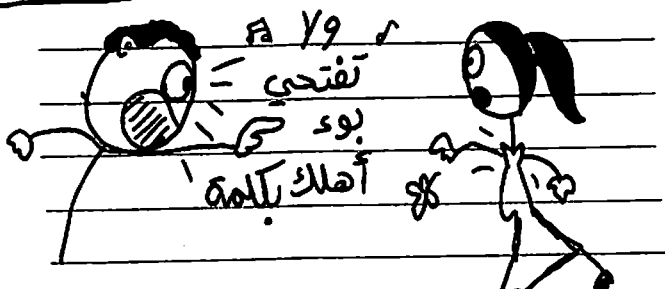 ♫ ولا ♪
تفتحي
بوء
أهلك بكلمة